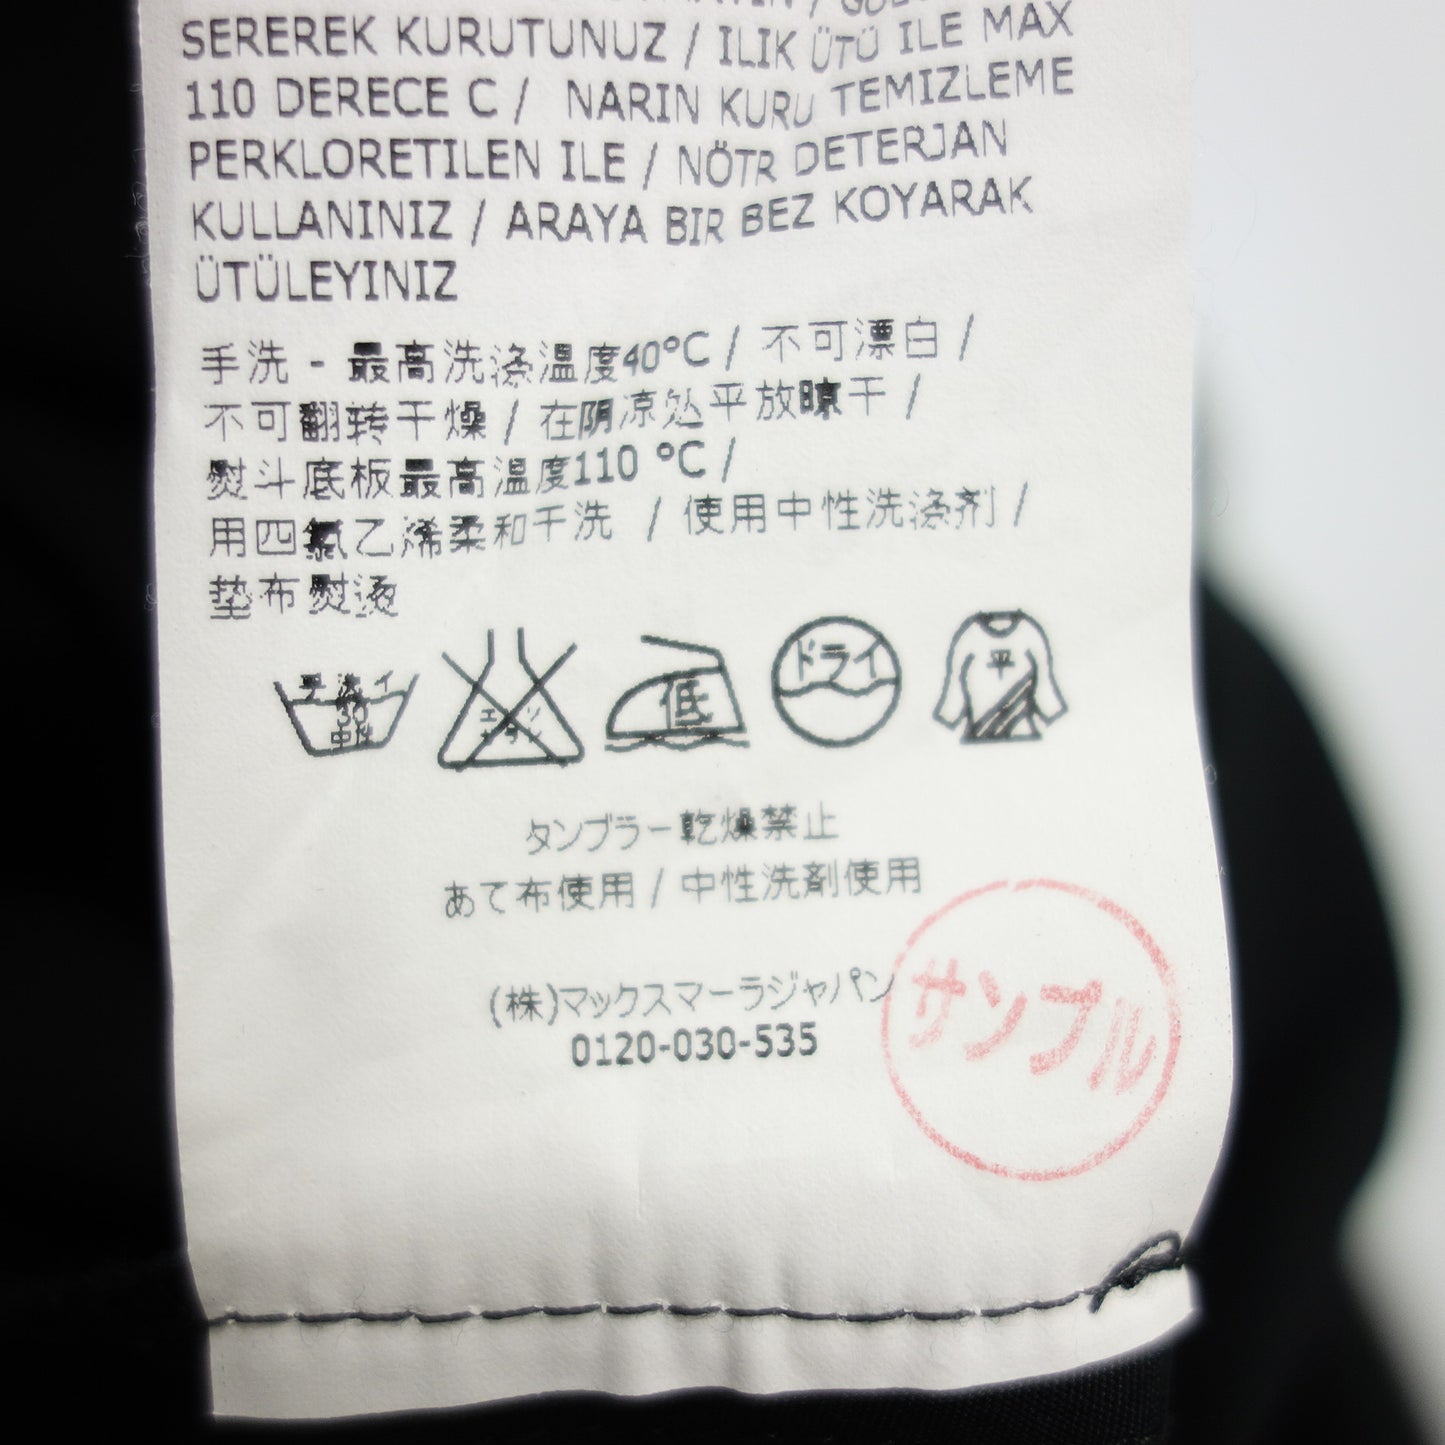 SEREREK KURUTUNUZ / ILIK ÜTÜ ILE MAX
110 DERECE C / NARIN KURU TEMIZLEME
PERKLORETILEN ILE / NÖTR DETERJAN
KULLANINIZ / ARAYA BIR BEZ KOYARAK
ÜTÜLEYINIZ
手洗 - 最高洗涤温度40°C / 不可漂白 /
不可翻转干燥 / 在阴凉处平放晾干 /
熨斗底板最高温度110 °C /
用四氯乙烯柔和干洗 / 使用中性洗涤剂 /
垫布熨烫
手洗イ
30
中性
エンソ
サラシ
低
ドライ
平
タンブラー乾燥禁止
あて布使用 / 中性洗剤使用
(株)マックスマーラジャパン
0120-030-535
サンプル